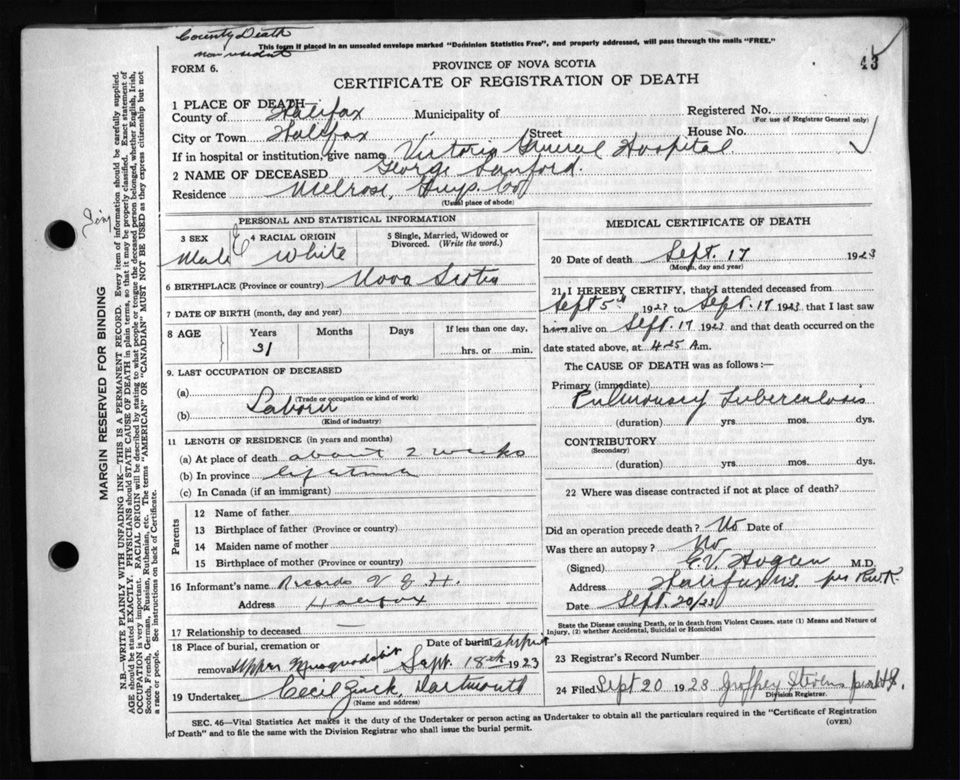 County Death
non resident
This form if placed in an unsealed envelope marked "Dominion Statistics Free", and properly addressed, will pass through the mails "FREE."
43
FORM 6.
PROVINCE OF NOVA SCOTIA
CERTIFICATE OF REGISTRATION OF DEATH
1 PLACE OF DEATH—
County of Halifax Municipality of Registered No.
(For use of Registrar General only)
City or Town Halifax Street House No.
If in hospital or institution, give name Victoria General Hospital
2 NAME OF DECEASED George Sanford.
Residence Melrose, Guys. Co
(Usual place of abode)
PERSONAL AND STATISTICAL INFORMATION
3 SEX
Male
4 RACIAL ORIGIN
White
5 Single, Married, Widowed or Divorced. (Write the word.)
6 BIRTHPLACE (Province or country) Nova Scotia
7 DATE OF BIRTH (month, day and year)
8 AGE Years Months Days If less than one day,
31 hrs. or min.
9. LAST OCCUPATION OF DECEASED
(a)
(Trade or occupation or kind of work)
(b) Laborer
(Kind of industry)
11 LENGTH OF RESIDENCE (in years and months)
(a) At place of death about 2 weeks
(b) In province lifetime
(c) In Canada (if an immigrant)
Parents
12 Name of father
13 Birthplace of father (Province or country)
14 Maiden name of mother
15 Birthplace of mother (Province or country)
16 Informant's name Records V. G. H.
Address Halifax
17 Relationship to deceased —
18 Place of burial, cremation or Date of burial shipment
removal Upper Musquodoboit Sept. 18th 1923
19 Undertaker Cecil Zinck, Dartmouth
(Name and address)
MEDICAL CERTIFICATE OF DEATH
20 Date of death Sept. 17 1923
(Month, day and year)
21 I HEREBY CERTIFY, that I attended deceased from
Sept 5th 1923 to Sept. 17 1923 that I last saw
him alive on Sept. 17 1923 and that death occurred on the
date stated above, at 4.25 A.m.
The CAUSE OF DEATH was as follows:—
Primary (immediate)
Pulmonary Tuberculosis
(duration) yrs. mos. dys.
CONTRIBUTORY
(Secondary)
(duration) yrs. mos. dys.
22 Where was disease contracted if not at place of death?
Did an operation precede death? No Date of
Was there an autopsy? No
(Signed) E.V. Hogan M.D.
Address Halifax N.S. per
Date Sept. 20/23
State the Disease causing Death, or in death from Violent Causes, state (1) Means and Nature of Injury, (2) whether Accidental, Suicidal or Homicidal
23 Registrar's Record Number
24 Filed Sept 20 1923 Stevens
Division Registrar.
SEC. 46—Vital Statistics Act makes it the duty of the Undertaker or person acting as Undertaker to obtain all the particulars required in the "Certificate of Registration
of Death" and to file the same with the Division Registrar who shall issue the burial permit.
(OVER)
MARGIN RESERVED FOR BINDING
N.B.—WRITE PLAINLY WITH UNFADING INK—THIS IS A PERMANENT RECORD. Every item of information should be carefully supplied.
AGE should be stated EXACTLY. PHYSICIANS should STATE CAUSE OF DEATH in plain terms, so that it may be properly classified. Exact statement of
OCCUPATION is very important. RACIAL ORIGIN will be described by stating to what people or tongue the deceased person belonged, whether English, Irish,
Scotch, French, German, Russian, Ruthenian, etc. The terms "AMERICAN" OR "CANADIAN" MUST NOT BE USED as they express citizenship but not
a race or people. See instructions on back of Certificate.